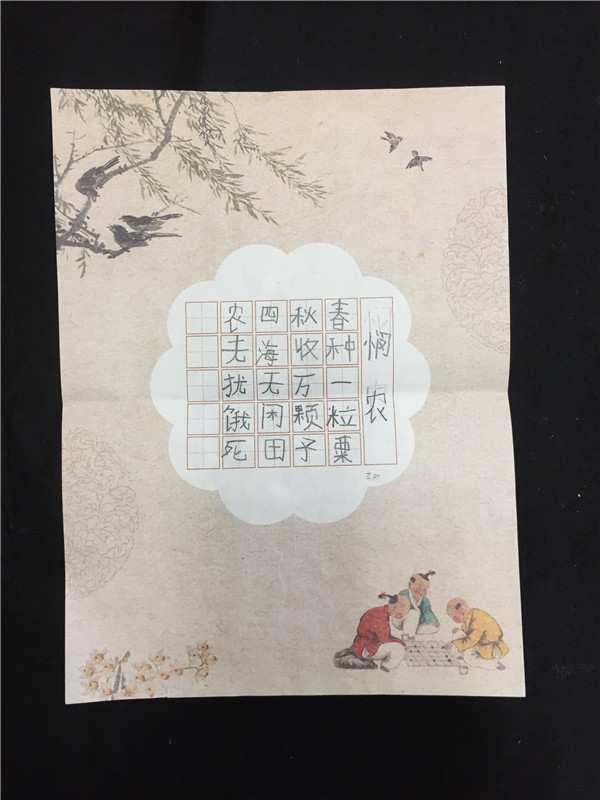 悯农
春种一粒粟
秋收万颗予
四海无闲田
农夫扰饿死